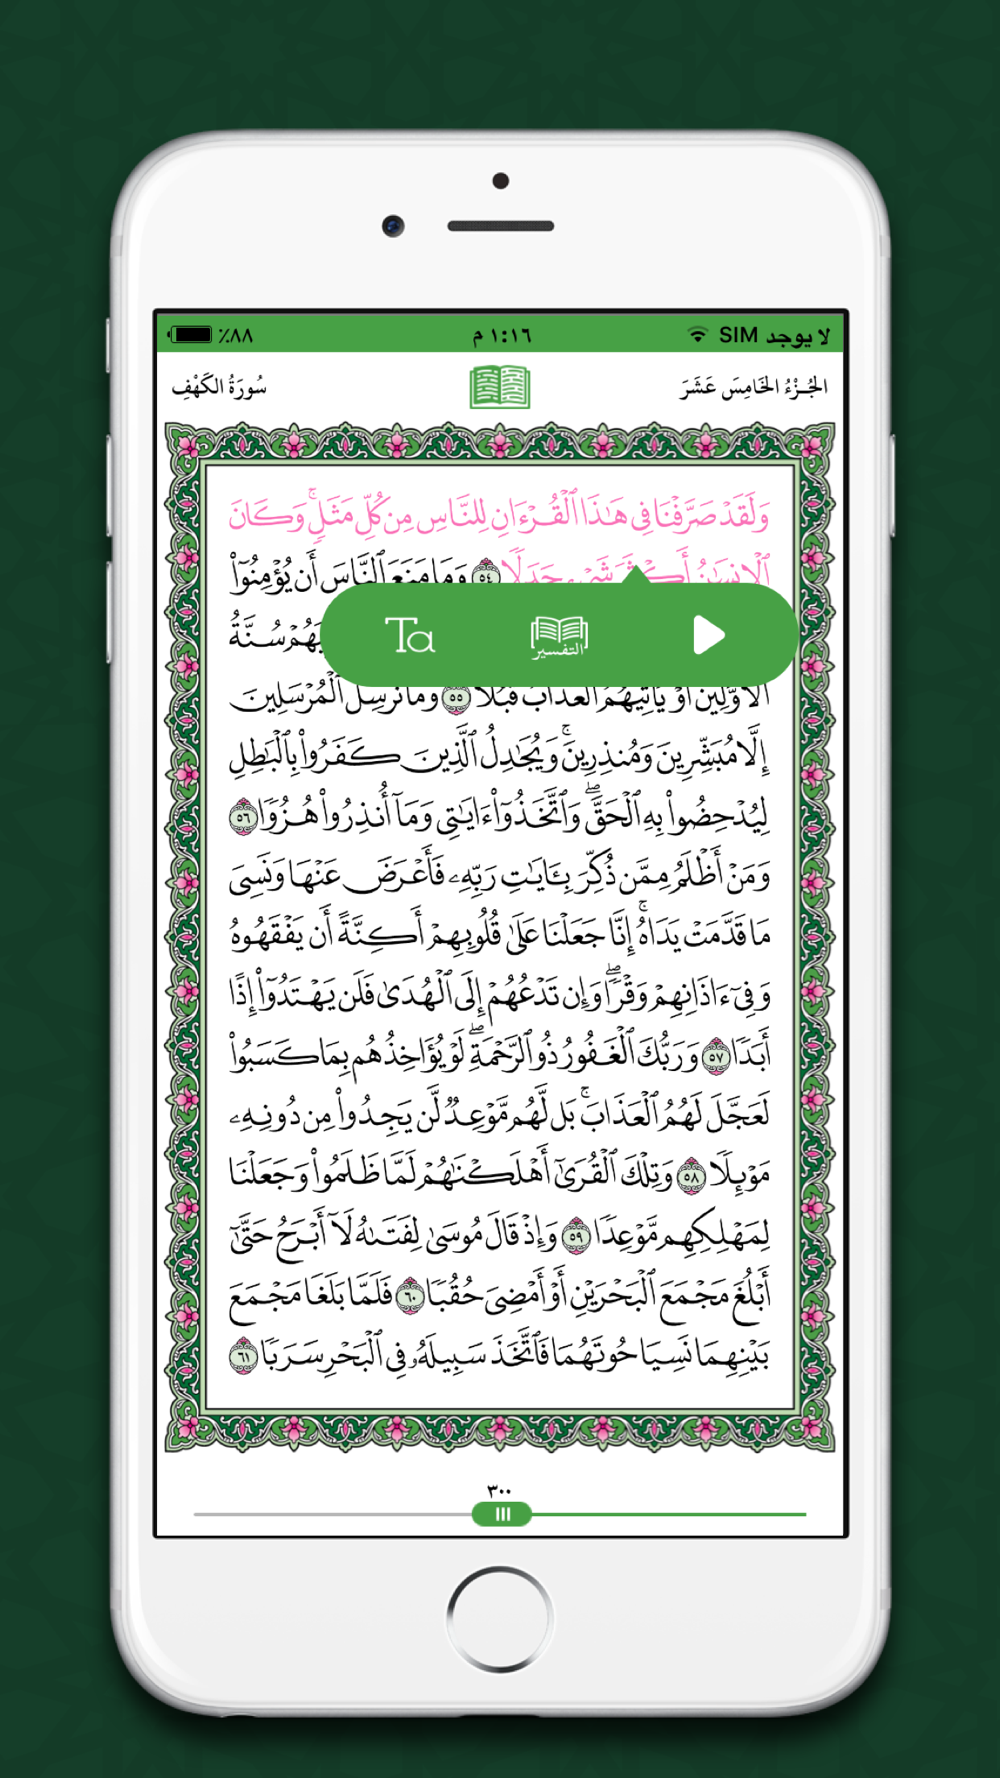 لا يوجد SIM ١:١٦ م ٪٨٨
الجُزْءُ الخَامِسَ عَشَرَ سُورَةُ الكَهْفِ
وَلَقَدْ صَرَّفْنَا فِى هَٰذَا ٱلْقُرْءَانِ لِلنَّاسِ مِن كُلِّ مَثَلٍۚ وَكَانَ
ٱلْإِنسَٰنُ أَكْثَرَ شَىْءٍ جَدَلًا ٥٤ وَمَا مَنَعَ ٱلنَّاسَ أَن يُؤْمِنُوٓا۟
سُنَّةُ
Ta التفسير
ٱلْأَوَّلِينَ أَوْ يَأْتِيَهُمُ ٱلْعَذَابُ قُبُلًا ٥٥ وَمَا نُرْسِلُ ٱلْمُرْسَلِينَ
إِلَّا مُبَشِّرِينَ وَمُنذِرِينَۚ وَيُجَٰدِلُ ٱلَّذِينَ كَفَرُوا۟ بِٱلْبَٰطِلِ
لِيُدْحِضُوا۟ بِهِ ٱلْحَقَّۖ وَٱتَّخَذُوٓا۟ ءَايَٰتِى وَمَآ أُنذِرُوا۟ هُزُوًا ٥٦
وَمَنْ أَظْلَمُ مِمَّن ذُكِّرَ بِـَٔايَٰتِ رَبِّهِۦ فَأَعْرَضَ عَنْهَا وَنَسِىَ
مَا قَدَّمَتْ يَدَاهُۚ إِنَّا جَعَلْنَا عَلَىٰ قُلُوبِهِمْ أَكِنَّةً أَن يَفْقَهُوهُ
وَفِىٓ ءَاذَانِهِمْ وَقْرًاۖ وَإِن تَدْعُهُمْ إِلَى ٱلْهُدَىٰ فَلَن يَهْتَدُوٓا۟ إِذًا
أَبَدًا ٥٧ وَرَبُّكَ ٱلْغَفُورُ ذُو ٱلرَّحْمَةِۖ لَوْ يُؤَاخِذُهُم بِمَا كَسَبُوا۟
لَعَجَّلَ لَهُمُ ٱلْعَذَابَۚ بَل لَّهُم مَّوْعِدٌ لَّن يَجِدُوا۟ مِن دُونِهِۦ
مَوْئِلًا ٥٨ وَتِلْكَ ٱلْقُرَىٰٓ أَهْلَكْنَٰهُمْ لَمَّا ظَلَمُوا۟ وَجَعَلْنَا
لِمَهْلِكِهِم مَّوْعِدًا ٥٩ وَإِذْ قَالَ مُوسَىٰ لِفَتَىٰهُ لَآ أَبْرَحُ حَتَّىٰٓ
أَبْلُغَ مَجْمَعَ ٱلْبَحْرَيْنِ أَوْ أَمْضِىَ حُقُبًا ٦٠ فَلَمَّا بَلَغَا مَجْمَعَ
بَيْنِهِمَا نَسِيَا حُوتَهُمَا فَٱتَّخَذَ سَبِيلَهُۥ فِى ٱلْبَحْرِ سَرَبًا ٦١
٣٠٠